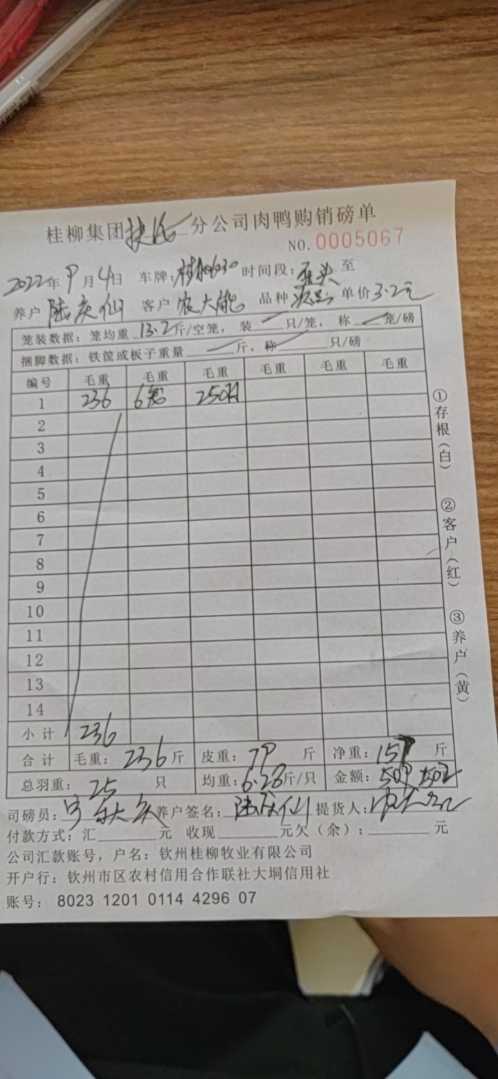 桂柳集团 分公司肉鸭购销磅单
NO.0005067
2022年9月4日 车牌: 时间段: 至
养户 陆庆仙 客户 农大能 品种 单价3.2元
笼装数据:笼均重 13.2 斤/空笼, 装 只/笼, 称 笼/磅
捆脚数据:铁筐或板子重量 斤,称 只/磅
编号 毛重 毛重 毛重 毛重 毛重 毛重
1 236 6笼 250只
2
3
4
5
6
7
8
9
10
11
12
13
14
小计 236
合计 毛重:236斤 皮重:79 斤 净重:157 斤
总羽重: 25 只 均重:6.28斤/只 金额:
司磅员: 养户签名:陆庆仙 提货人:
付款方式:汇 元 收现 元欠(余): 元
公司汇款账号,户名:钦州桂柳牧业有限公司
开户行:钦州市区农村信用合作联社大垌信用社
账号: 8023 1201 0114 4296 07
①存根(白) ②客户(红) ③养户(黄)